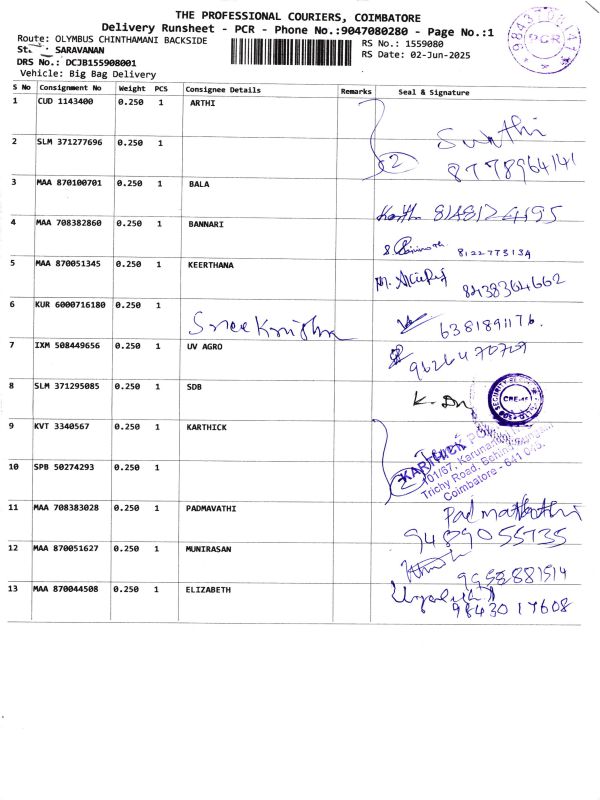 THE PROFESSIONAL COURIERS, COIMBATORE
Delivery Runsheet - PCR - Phone No.:9047080280 - Page No.:1
Route: OLYMBUS CHINTHAMANI BACKSIDE
RS No.: 1559080
SARAVANAN
RS Date: 02-Jun-2025
DRS No.: DCJB155908001
Vehicle: Big Bag Delivery
PCR
S No Consignment No Weight PCS Consignee Details Remarks Seal & Signature
1 CUD 1143400 0.250 1 ARTHI
2 SLM 371277696 0.250 1
2
8778964141
3 MAA 870100701 0.250 1 BALA
8148124195
4 MAA 708382860 0.250 1 BANNARI
8122773134
5 MAA 870051345 0.250 1 KEERTHANA
8438364662
6 KUR 6000716180 0.250 1 Sree Krishna
6381891176.
7 IXM 508449656 0.250 1 UV AGRO
9626470709
8 SLM 371295085 0.250 1 SDB
9 KVT 3340567 0.250 1 KARTHICK
10 SPB 50274293 0.250 1
2
Trichy Road,
Coimbatore - 641
11 MAA 708383028 0.250 1 PADMAVATHI
9489055735
12 MAA 870051627 0.250 1 MUNIRASAN
9958881514
13 MAA 870044508 0.250 1 ELIZABETH
9843017608